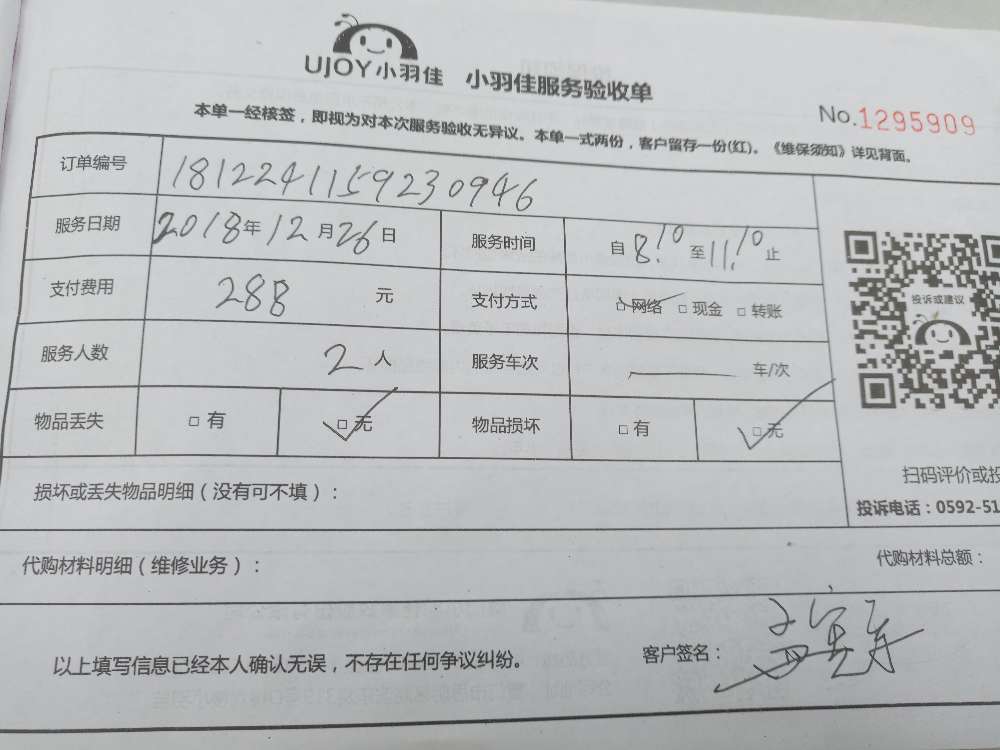 UJOY小羽佳 小羽佳服务验收单
No.1295909
本单一经核签，即视为对本次服务验收无异议。本单一式两份，客户留存一份(红)。《维保须知》详见背面。
订单编号 1812241159230946
服务日期 2018年12月26日 服务时间 自8:10至11:10止
支付费用 288 元 支付方式 □网络 □现金 □转账
投诉或建议
服务人数 2人 服务车次 车/次
物品丢失 □有 □无 物品损坏 □有 □无
扫码评价或投
损坏或丢失物品明细（没有可不填）：
投诉电话：0592-51
代购材料明细（维修业务）：
代购材料总额：
以上填写信息已经本人确认无误，不存在任何争议纠纷。
客户签名：